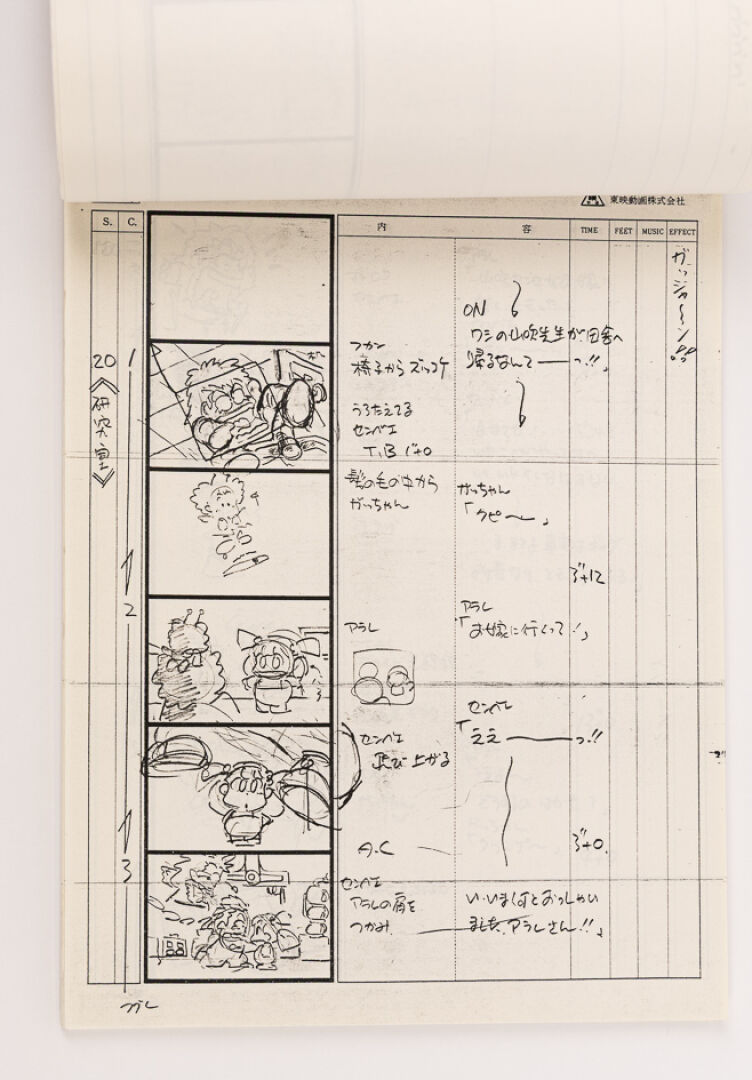 東映動画株式会社
S. C. 内 容 TIME FEET MUSIC MUSIC EFFECT
ガッショ〜〜ン!!
ON
ワシの山吹先生が田舎へ
帰るなんて――っ!!」
20
《研究室》
1
フカン
椅子からズッコケ
うろたえてる
センベエ
T.B 1'+0
髪の毛の中から
がっちゃん
がっちゃん
「クピ〜〜」
3'+12
2
アラレ
アラレ
「お嫁に行くって!」
センベエ
飛び上がる
センベエ
「ええ――――っ!!
A.C
3'+0
3
センベエ
アラレの肩を
つかみ
い・いま何とおっしゃい
ました、アラレさん!!」